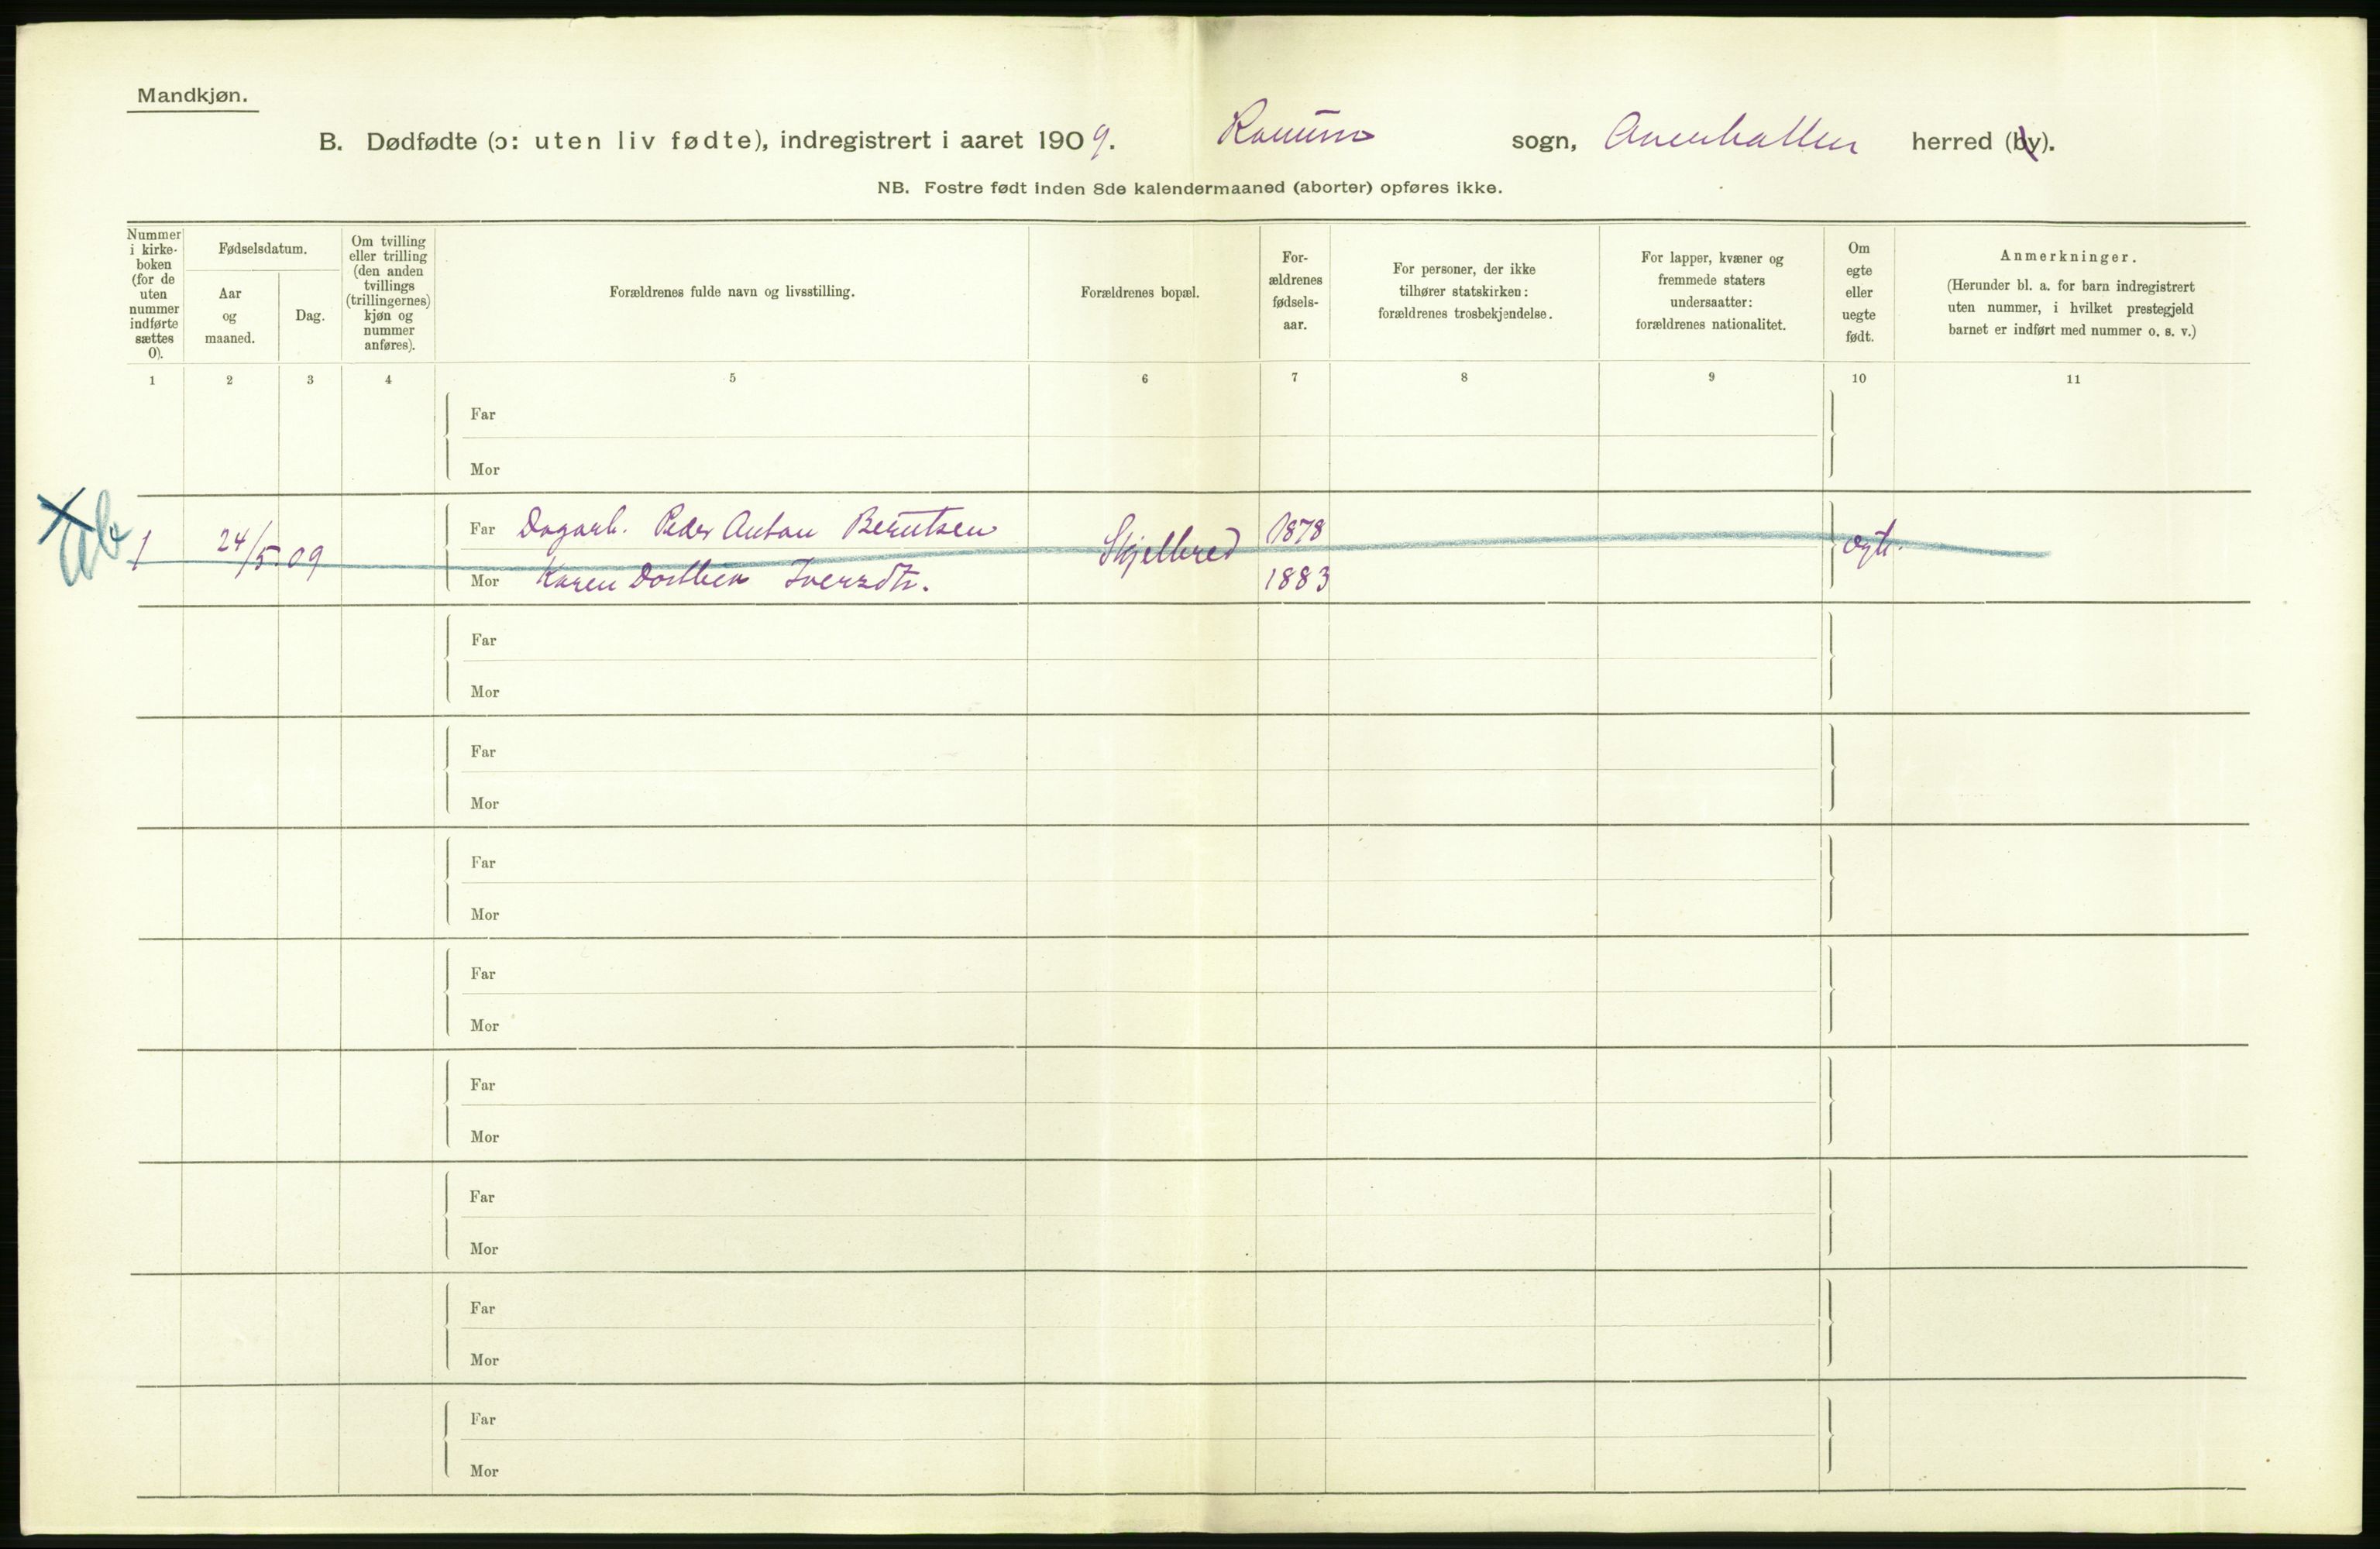 Mandkjøn.
B. Dødfødte (ɔ: uten liv fødte), indregistrert i aaret 1909. Ranum sogn, Overhallen herred (by).
NB. Fostre født inden 8de kalendermaaned (aborter) opføres ikke.
Nummer
i kirke-
boken
(for de
uten
nummer
indførte
sættes
0).
Fødselsdatum.
Aar
og
maaned.
Dag.
Om tvilling
eller trilling
(den anden
tvillings
(trillingernes)
kjøn og
nummer
anføres).
Forældrenes fulde navn og livsstilling.
Forældrenes bopæl.
For-
ældrenes
fødsels-
aar.
For personer, der ikke
tilhører statskirken:
forældrenes trosbekjendelse.
For lapper, kvæner og
fremmede staters
undersaatter:
forældrenes nationalitet.
Om
egte
eller
uegte
født.
Anmerkninger.
(Herunder bl. a. for barn indregistrert
uten nummer, i hvilket prestegjeld
barnet er indført med nummer o. s. v.)
1 2 3 4 5 6 7 8 9 10 11
Far
Mor
1 24/5 09 Far Dagarb. Peder Anton Berntsen Skjelbred 1878 egte.
Mor Karen Dorthea Iversdtr. 1883
Far
Mor
Far
Mor
Far
Mor
Far
Mor
Far
Mor
Far
Mor
Far
Mor
Far
Mor